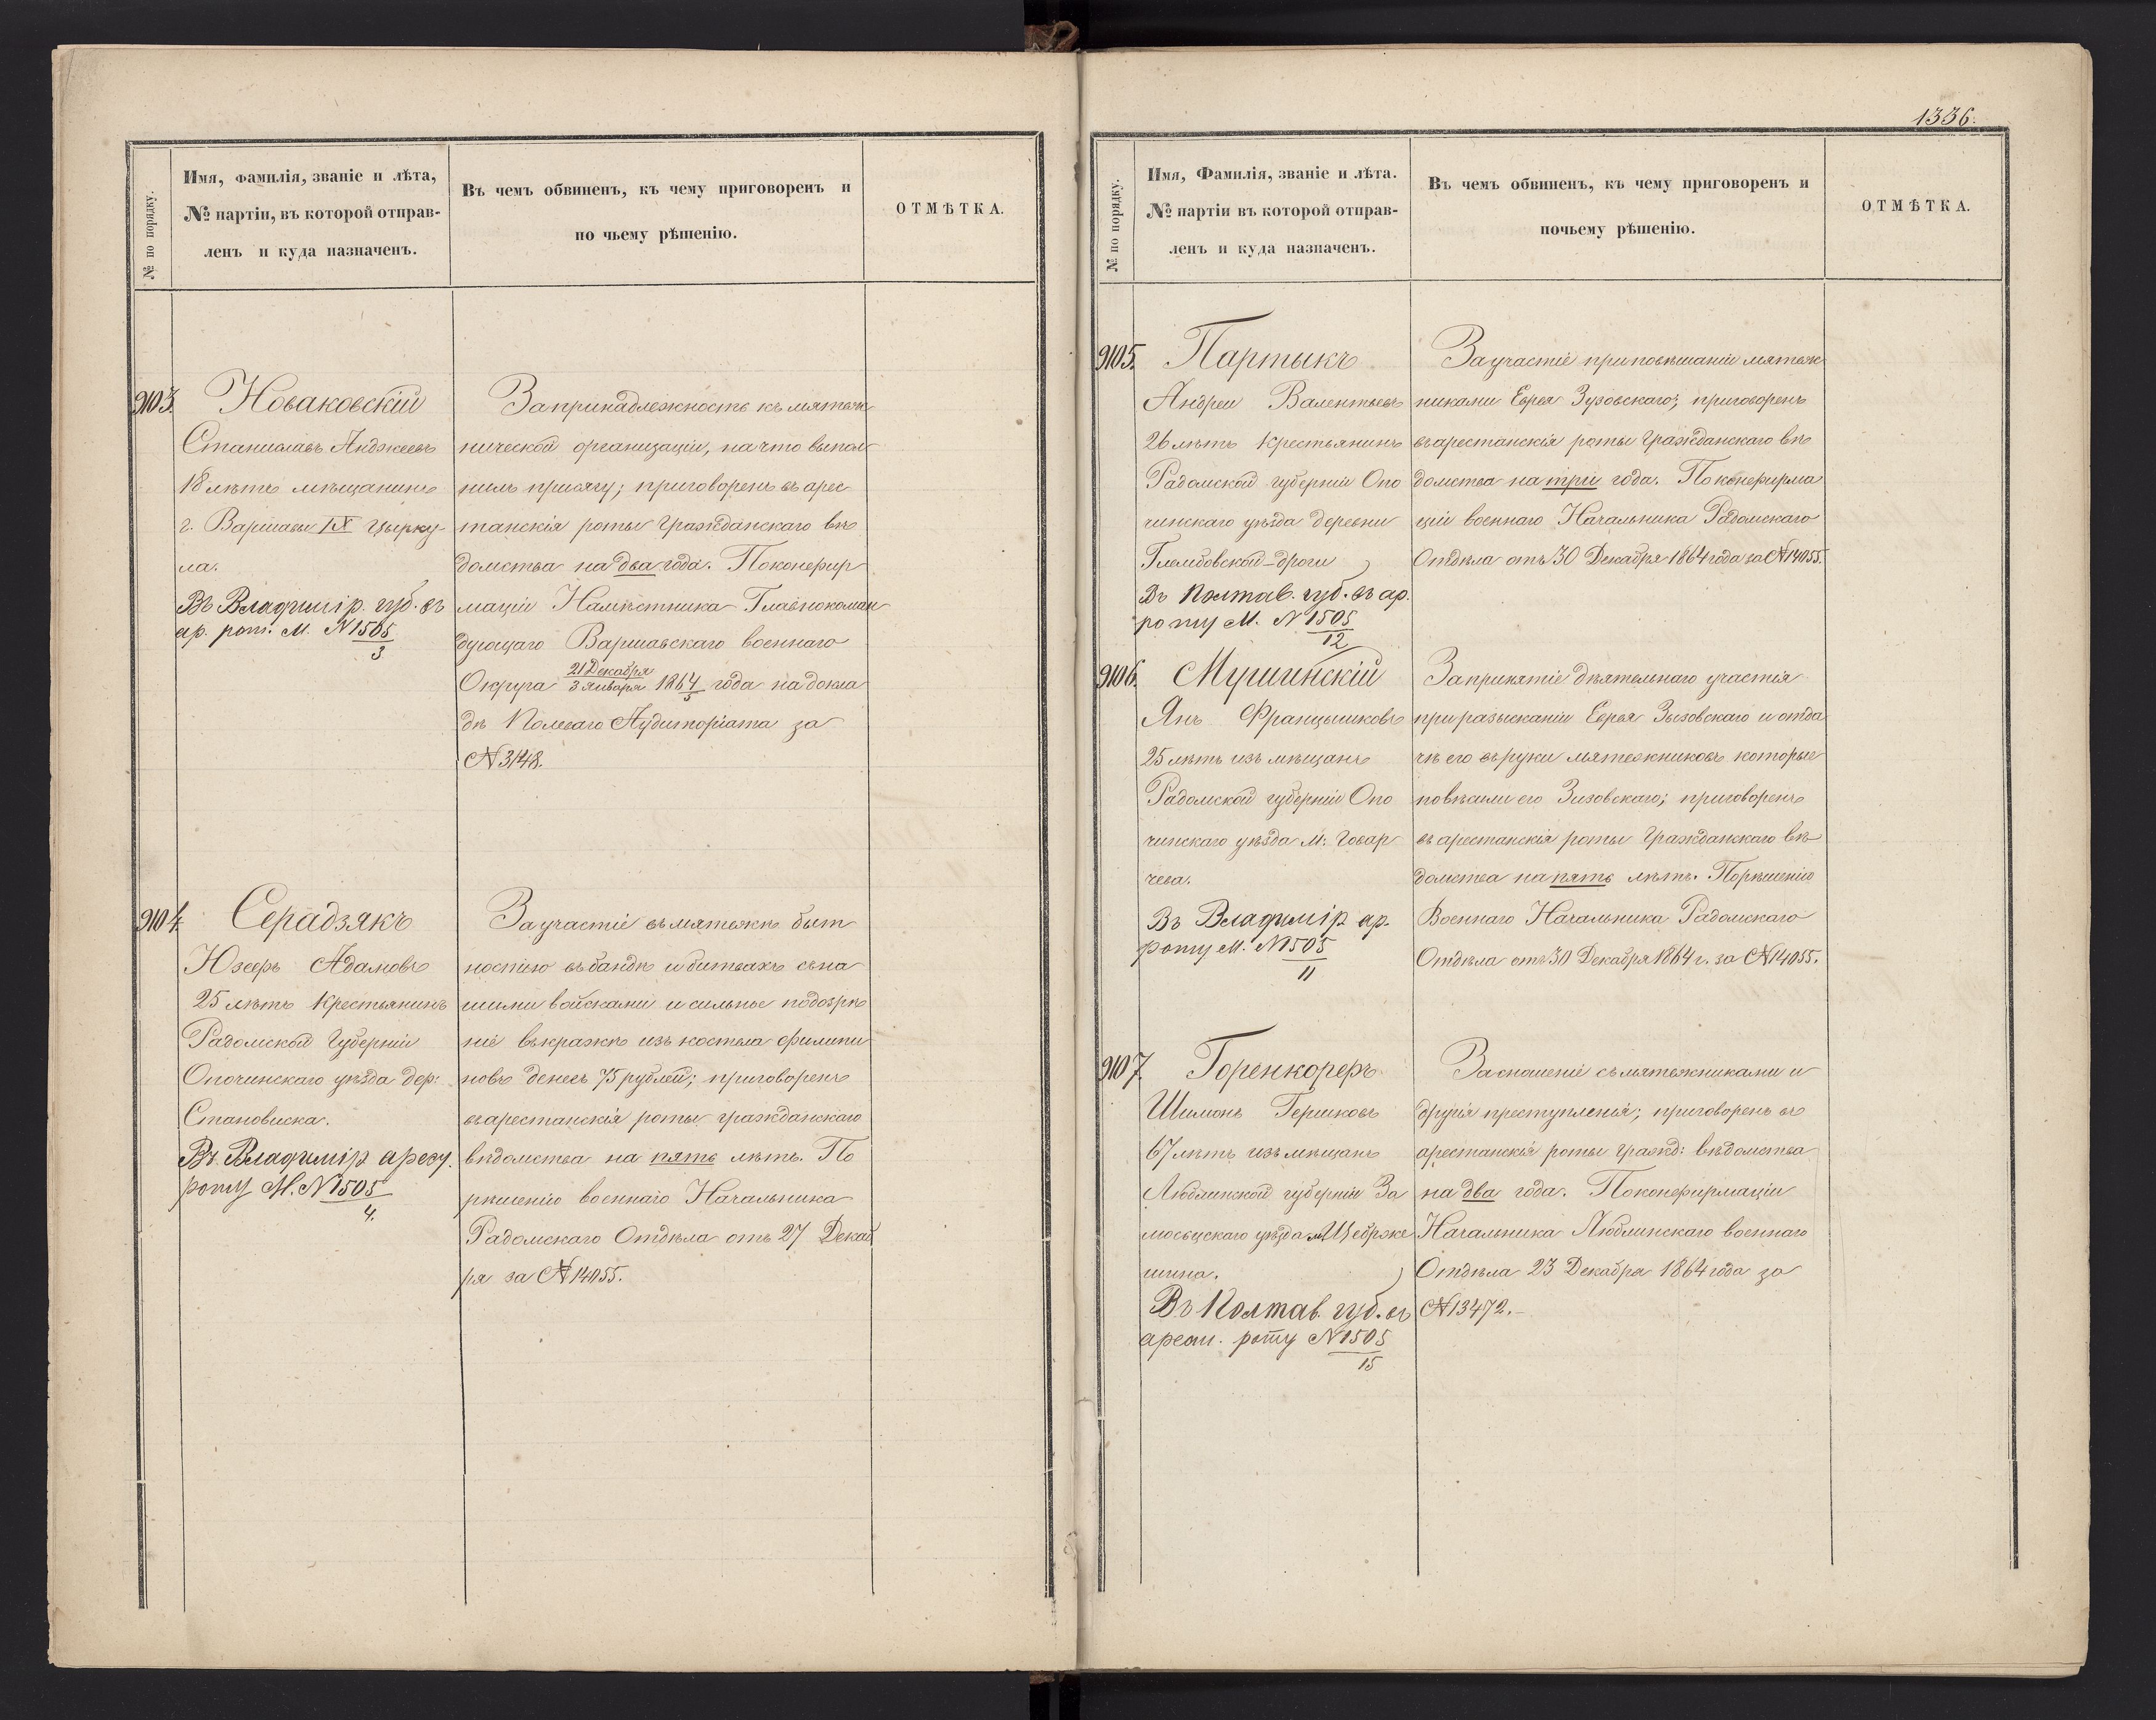 № по порядку.
Имя, фамилія, званіе и лѣта,
№ партіи, въ которой отправ-
ленъ и куда назначенъ.
Въ чемъ обвиненъ, къ чему приговоренъ и
по чьему рѣшенію.
ОТМѢТКА.
9103.
Новаковскій
Станиславъ Анджеевъ
18 лѣтъ мѣщанинъ
г. Варшавы IX Цырку-
ла.
Въ Владимір. губ. въ
ар. рот. М. N 1505
3
За принадлежность къ мятеж
нической организаціи, на что выпол
нилъ присягу; приговоренъ въ арес
танскія роты Гражданскаго вѣ
домства на два года. По конфир
маціи Намѣстника Главнокоман
дующаго Варшавскаго военнаго
Округа 21 Декабря
3 Января 1864
5 года на докла
дѣ Полеваго Аудиторіата за
N 3148.
9104.
Серадзякъ
Юзефъ Адамовъ
25 лѣтъ Крестьянинъ
Радомской Губерніи
Опочинскаго уѣзда дер:
Становиска.
Въ Владимір
роту М. N 1505
4.
За участіе въ мятежѣ быт
ностію въ бандѣ и битвахъ съ на
шими войсками и сильное подозрѣ
ніе въ кражѣ изъ костела филипи
новъ денегъ 75 рублей; приговоренъ
въ арестанскія роты гражданскаго
вѣдомства на пять лѣтъ. По
рѣшенію военнаго Начальника
Радомскаго Отдѣла отъ 27 Декаб
ря за N 14055.
1336.
№ по порядку.
Имя, Фамилія, званіе и лѣта.
№ партіи въ которой отправ-
ленъ и куда назначенъ.
Въ чемъ обвиненъ, къ чему приговоренъ и
почьему рѣшенію.
ОТМѢТКА.
9105.
Партыкъ
Андрей Валентьевъ
26 лѣтъ Крестьянинъ
Радомской губерніи Опо
чинскаго уѣзда деревни
дроги
Въ Полтав. губ. въ ар.
роту М. N 1505
12
За участіе при повѣшаніи мятеж
никами Еврея Зузовскаго; приговоренъ
въ арестанскія роты Гражданскаго вѣ
домства на три года. По конфирма
ціи военнаго Начальника Радомскаго
Отдѣла отъ 30 Декабря 1864 года за N 14055.
9106.
Мушинскій
Янъ Францышковъ
25 лѣтъ изъ мѣщанъ
Радомской губерніи Опо
чинскаго уѣзда М: Говар
чева.
Въ Владимір ар.
роту М. N 1505
11
За принятіе дѣятельнаго участія
при разысканіи Еврея Зызовскаго и отда
чѣ его въ руки мятежниковъ которые
повѣсили его Зизовскаго; приговоренъ
въ арестанскія роты Гражданскаго вѣ
домства на пять лѣтъ. По рѣшенію
Военнаго Начальника Радомскаго
Отдѣла отъ 30 Декабря 1864 г. за N 14055.
9107.
Горенкореръ
Шимонъ Гершковъ
67 лѣтъ изъ мѣщанъ
Люблинской губерніи За
мосьцскаго уѣзда м. Щебрже
шина.
Въ Полтав. губ. въ
арест. роту N 1505
15
За сношеніе съ мятежниками и
другія преступленія; приговоренъ въ
арестанскія роты гражд: вѣдомства
на два года. По конфирмаціи
Начальника Люблинскаго военнаго
Отдѣла 23 Декабря 1864 года за
N 13472.